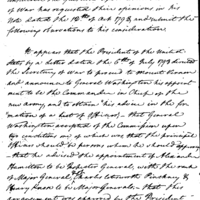 of War has requested their opinions in his
Note dated the 12th of Oct 1798, and submit the
following observations to his consideration.
It appears that the President of the United
States by a letter dated the 6th of July 1798 directed
the Secretary of War to proceed to Mount Vernon
and announce to General Washington his appoint
ment to be the Commander in Chief of the
new army, and to obtain his advice in the for
mation of a list of officers; that General
Washington accepted of the Commission upon
two conditions one of which was that the principal
officers should be persons whom he should approve
that he advised the appointment of Alexander
Hamilton to be Inspector General, with the rank
of Major General, Charles Cotesworth Pinckney &
Henry Knox to be Major Generals, that this
arrangement was approved by the President